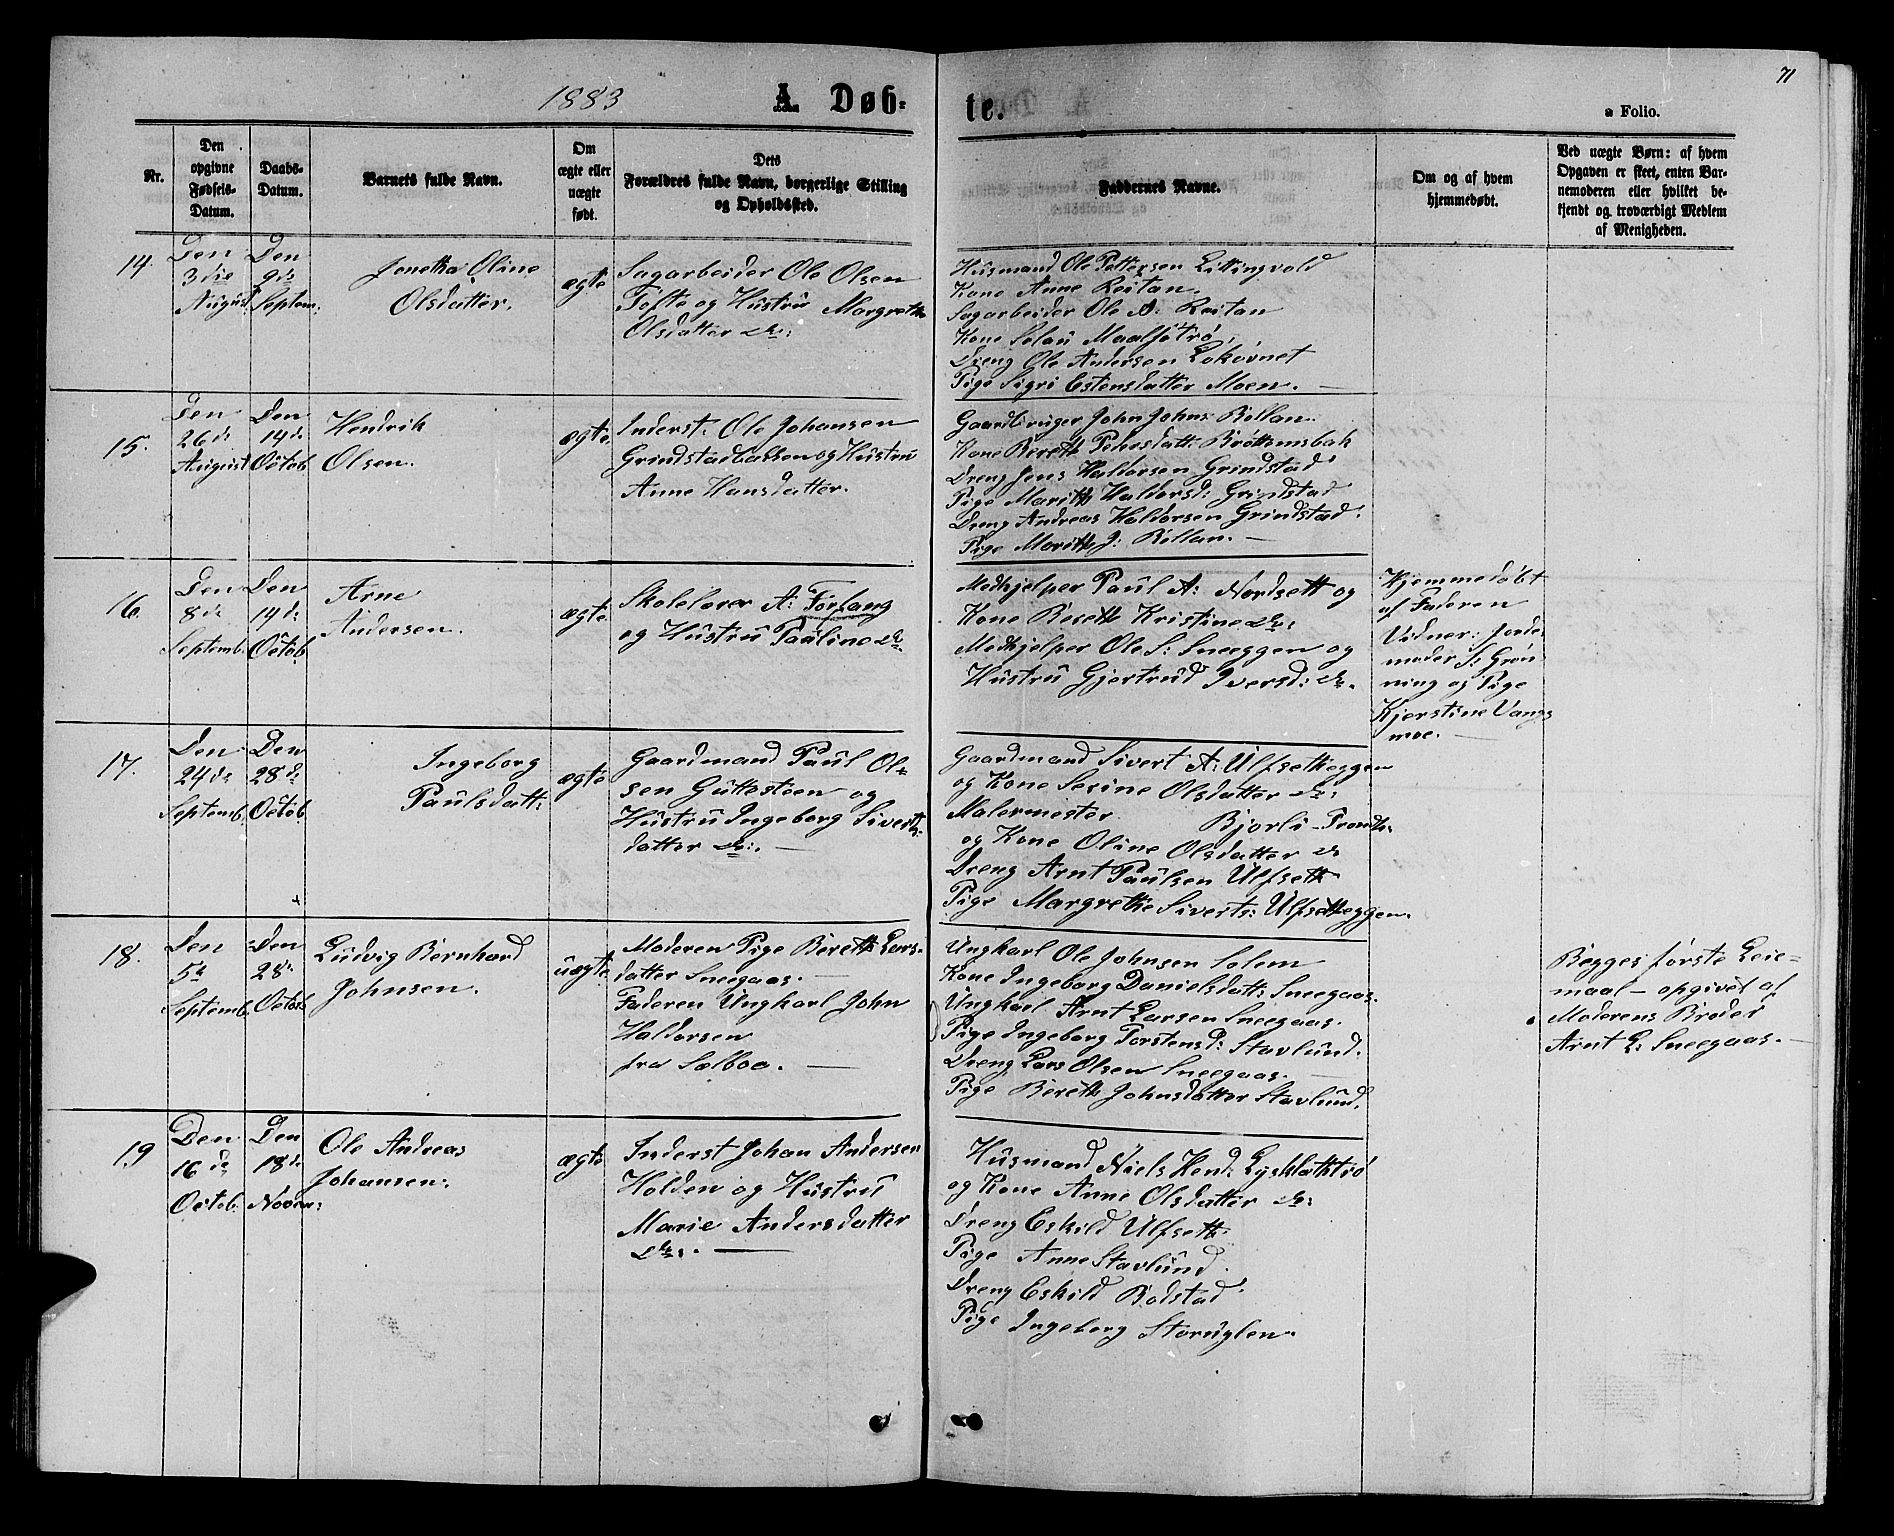 1883
A. Døb=
te.
71
a Folio.
Nr.
Den
opgivne
Fødsels-
Datum.
Daabs-
Datum.
Barnets fulde Navn.
Om
ægte eller
uægte
født.
Dets
Forældres fulde Navn, borgerlige Stilling
og Opholdssted.
Faddernes Navne.
Om og af hvem
hjemmedøbt.
Ved uægte Børn: af hvem
Opgaven er skeet, enten Bar-
nemoderen eller hvilket be-
kjendt og troværdigt Medlem
af Menigheden.
14.
Den
3die
August
Den
9de
Septem:
Jonetha Oline
Olsdatter.
ægte
Sagarbeider Ole Olsen
Tofte og Hustru Margrethe
Olsdatter ds:
Husmand Ole Pettersen Littingvold
Kone Anne Reitan.
Sagarbeider Ole A: Reitan
Kone Solau
Dreng Ole Andersen
Pige Sigri Estensdatter Moen.
15.
Den
26de
August
Den
14de
Octob.
Hendrik
Olsen.
ægte.
Inderst. Ole Johansen
Grindstadbakken og Hustru
Anne Hansdatter.
Gaardbruger John Johns: Rollan.
Kone Bereth
Dreng Jens Haldorsen Grindstad
Pige Marith Haldorsd: Grindstad
Dreng Andreas Haldorsen Grindstad.
Pige Marith J: Rollan.
16.
Den
8de
Septemb.
Den
14de
Octob.
Arne
Andersen.
ægte.
Skolelærer A: Forfang
og Hustru Pauline ds.
Medhjelper Paul A: Nordsett og
Kone Bereth Kristine ds:
Medhjelper Ole S: Sneeggen og
Hustru Gjertrud Iversd: ds.
Hjemmedøbt
af Faderen
Vidner: Jorde-
moder S: Grøn
ning og Pige
Kjerstine Vangs
moe.
17.
Den
24de
Septemb.
Den
28de
Octob.
Ingeborg
Paulsdatt:
ægte
Gaardmand Paul Ol=
sen Guttesteen og
Hustru Ingeborg Siverts
datter ds:.
Gaardmand Sivert A: Ulfsetteggen
og Kone Serine Olsdatter ds:
Malermester Bjorli - Trondh:
og Kone Oline Olsdatter ds
Dreng Arnt Paulsen Ulfseth
Pige Margrethe Siverts: Ulfsetteggen.
18.
Den
5te
Septemb.
Den
28de
Octob.
Ludvig Bernhard
Johnsen.
uægte.
Moderen Pige Bereth Lars-
datter Sneegaas.
Faderen Ungkarl John
Haldorsen
fra Selboe.
Ungkarl Ole Johnsen Solem
Kone Ingeborg Danielsdatt: Sneegaas.
Ungkarl Arnt Larsen Sneegaas.
Pige Ingeborg Torstensd: Stavlund.
Dreng Lars Olsen Sneegaas.
Pige Bereth Johnsdatter Stavlund.
Begges første Leie=
maal - opgivet af
Moderens Broder
Arnt L: Sneegaas.
19
Den
16de
Octob.
Den
18de
Novem:
Ole Andreas
Johansen.
ægte
Inderst Johan Andersen
Holden og Hustru
Marie Andersdatter
ds:.
Husmand Niels Hend: Lysklættrø
og Kone Anne Olsdatter ds:
Dreng Eskild Ulfseth
Pige Anne Stavlund.
Dreng Eskild Rodstad.
Pige Ingeborg Storuglen.